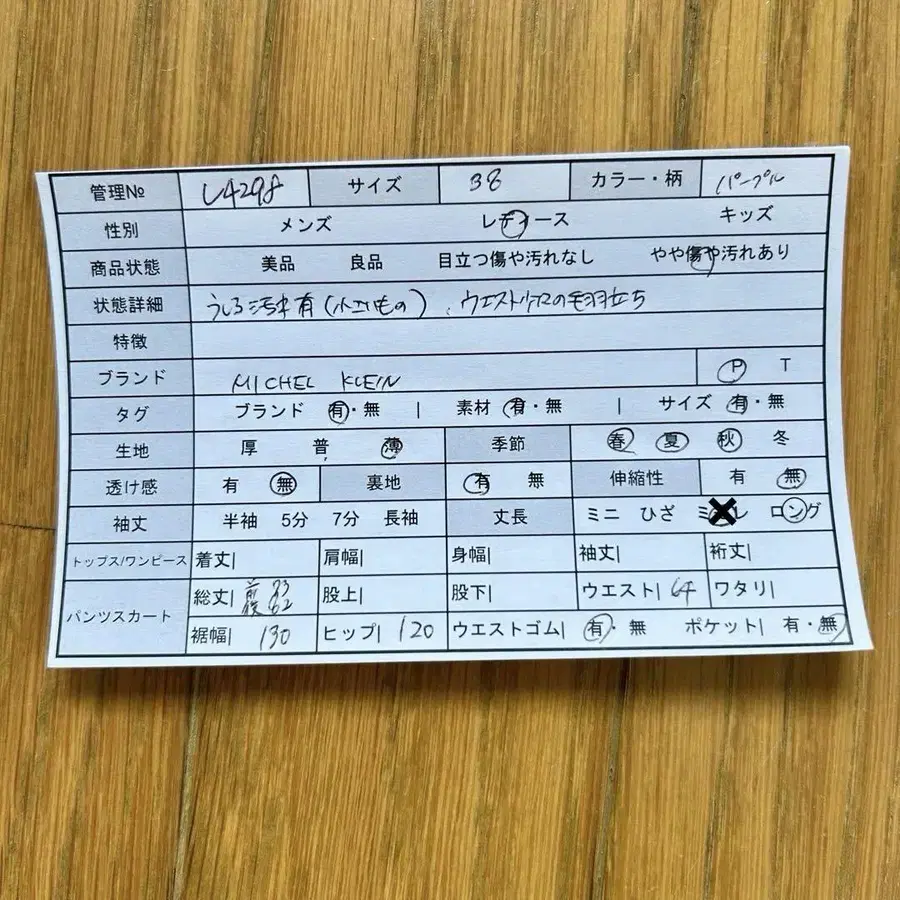 管理№ L4298 サイズ 38 カラー・柄 パープル
性別 メンズ レディース キッズ
商品状態 美品 良品 目立つ傷や汚れなし やや傷や汚れあり
状態詳細 うしろ汚れ有(小さいもの)、ウエストゴムの毛羽立ち
特徴
ブランド MICHEL KLEIN P T
タグ ブランド 有・無 | 素材 有・無 | サイズ 有・無
生地 厚 普 薄 季節 春 夏 秋 冬
透け感 有 無 裏地 有 無 伸縮性 有 無
袖丈 半袖 5分 7分 長袖 丈長 ミニ ひざ ミモレ ロング
トップス/ワンピース 着丈| 肩幅| 身幅| 袖丈| 裄丈|
パンツスカート 総丈| 前 73 後 62 股上| 股下| ウエスト| 64 ワタリ|
裾幅| 130 ヒップ| 120 ウエストゴム| 有・無 ポケット| 有・無